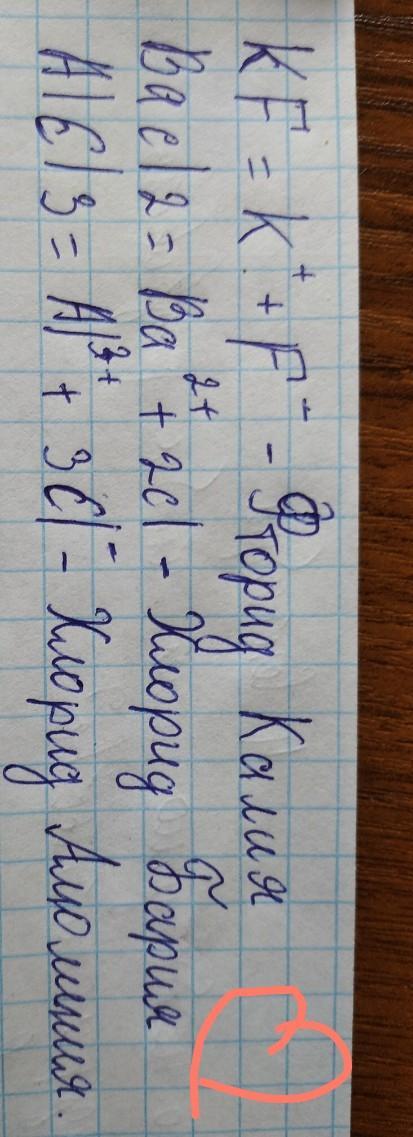 KF = K⁺ + F⁻ - Фторид Калия
Bacl2 = Ba²⁺ + 2cl - Хлорид Бария
AlCl3 = Al³⁺ + 3Cl⁻ - Хлорид Алюминия.